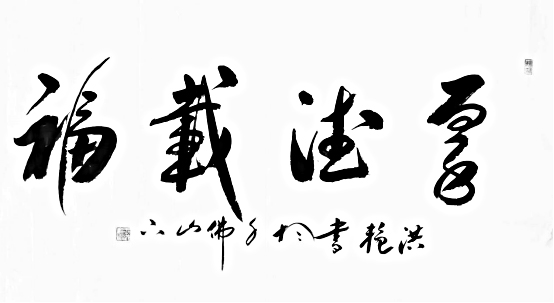 厚德載福
洪艳書於千佛山下